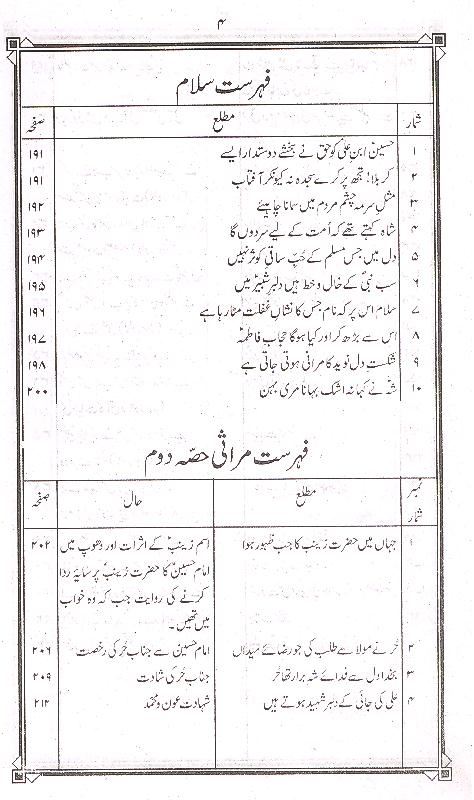 ۴
فہرست سلام
شمار مطلع صفحہ
۱ حسینؑ ابنِ علیؑ کو حق نے بخشے دوستدار ایسے ۱۹۱
۲ کربلا! تجھ پر کرے سجدہ نہ کیونکر آفتاب ۱۹۱
۳ مثلِ سرمہ چشمِ مردم میں سمانا چاہئیے ۱۹۲
۴ شاہ کہتے تھے کہ اُمت کے لیے سر دوں گا ۱۹۳
۵ دل میں جس مسلم کے حُبِّ ساقیِ کوثر نہیں ۱۹۴
۶ سب نبیؐ کے خال و خط ہیں دلبرِ شبیرؑ میں ۱۹۵
۷ سلام اس پر کہ نام جس کا نشانِ غفلت مٹا رہا ہے ۱۹۶
۸ اس سے بڑھ کر اور کیا ہوگا حجابِ فاطمہؑ ۱۹۷
۹ شکستِ دل نویدِ کامرانی ہوتی جاتی ہے ۱۹۸
۱۰ شہؑ نے کہا نہ اشک بہانا مری بہن ۲۰۰
فہرست مراثی حصّہ دوم
نمبر شمار مطلع حال صفحہ
۱ جہاں میں حضرت زینبؑ کا جب ظہور ہوا اسم زینبؑ کے اثرات اور دھوپ میں ۲۰۲
امام حسینؑ کا حضرت زینبؑ پر سایۂ ردا
کرنے کی روایت جب کہ وہ خواب
میں تھیں۔
۲ حُر نے مولا سے طلب کی جو رضائے میداں امام حسینؑ سے جناب حُر کی رخصت ۲۰۶
۳ بخدا اول سے فدائے شہِ ابرار تھا حُر جناب حُر کی شہادت ۲۰۹
۴ علیؑ کی جائی کے دلبر شہید ہوتے ہیں شہادت عون و محمدؑ ۲۱۲